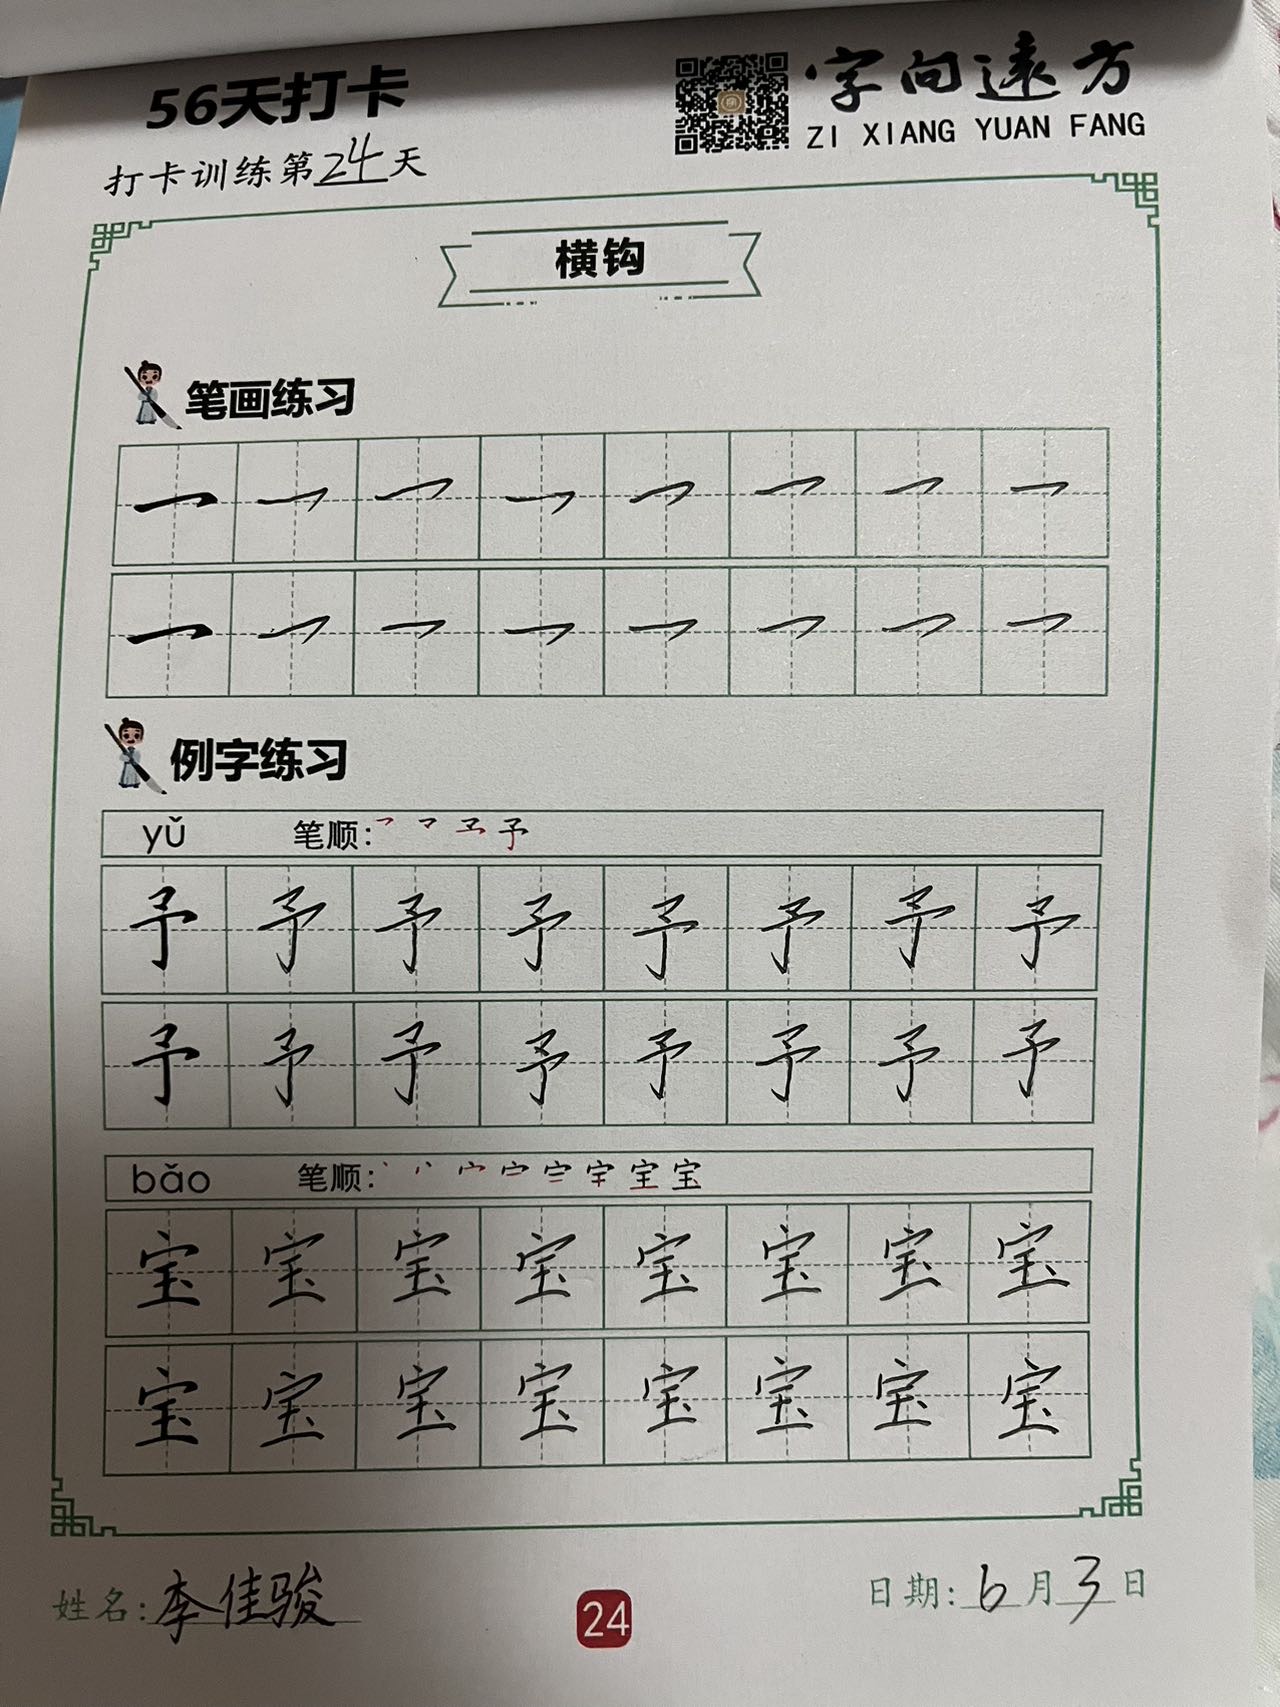 56天打卡
字向遠方
ZI XIANG YUAN FANG
打卡训练第24天
横钩
笔画练习
例字练习
yǔ 笔顺: 予
予 予 予 予 予 予 予 予
予 予 予 予 予 予 予 予
bǎo 笔顺: 宝 宝
宝 宝 宝 宝 宝 宝 宝 宝
宝 宝 宝 宝 宝 宝 宝 宝
姓名: 李佳骏 24 日期: 6月3日